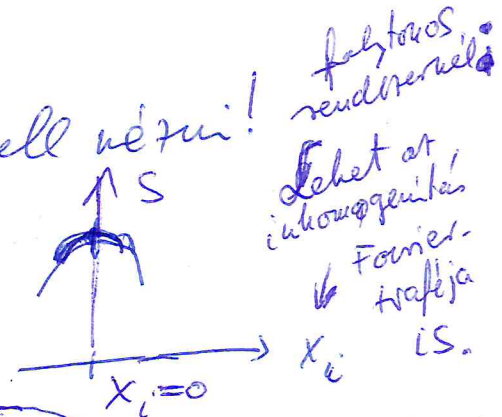 ell nézni!
S
X_i=0
folytonos
rendszernél:
Lehet az
inhomogenitás
Fourier-
trafója
is.
x_i